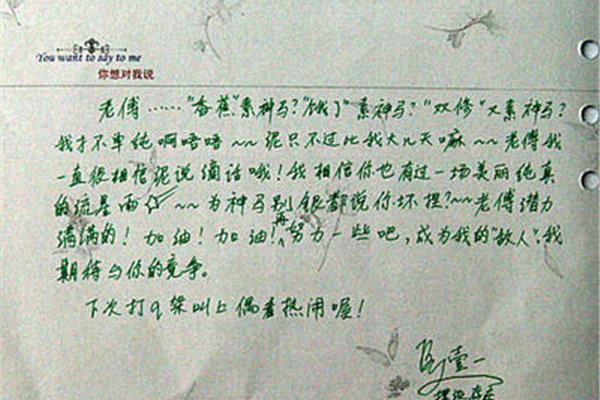 You want to say to me
你想对我说
老傅……"香蕉"素神马?"饿了"素神马?"双修"又素神马?
我才不单纯啊唔唔~~泥只不过比我大几天嘛~~老傅我
一直很相信泥说滴话哦!我相信你也有过一场美丽纯真
的流星雨~~为神马别银都说你坏捏?~~老傅潜力
满满的!加油!加油!再努力一些吧,成为我的"敌人",我
期待与你的竞争。
下次打q架叫上偶看热闹喔!
壹一